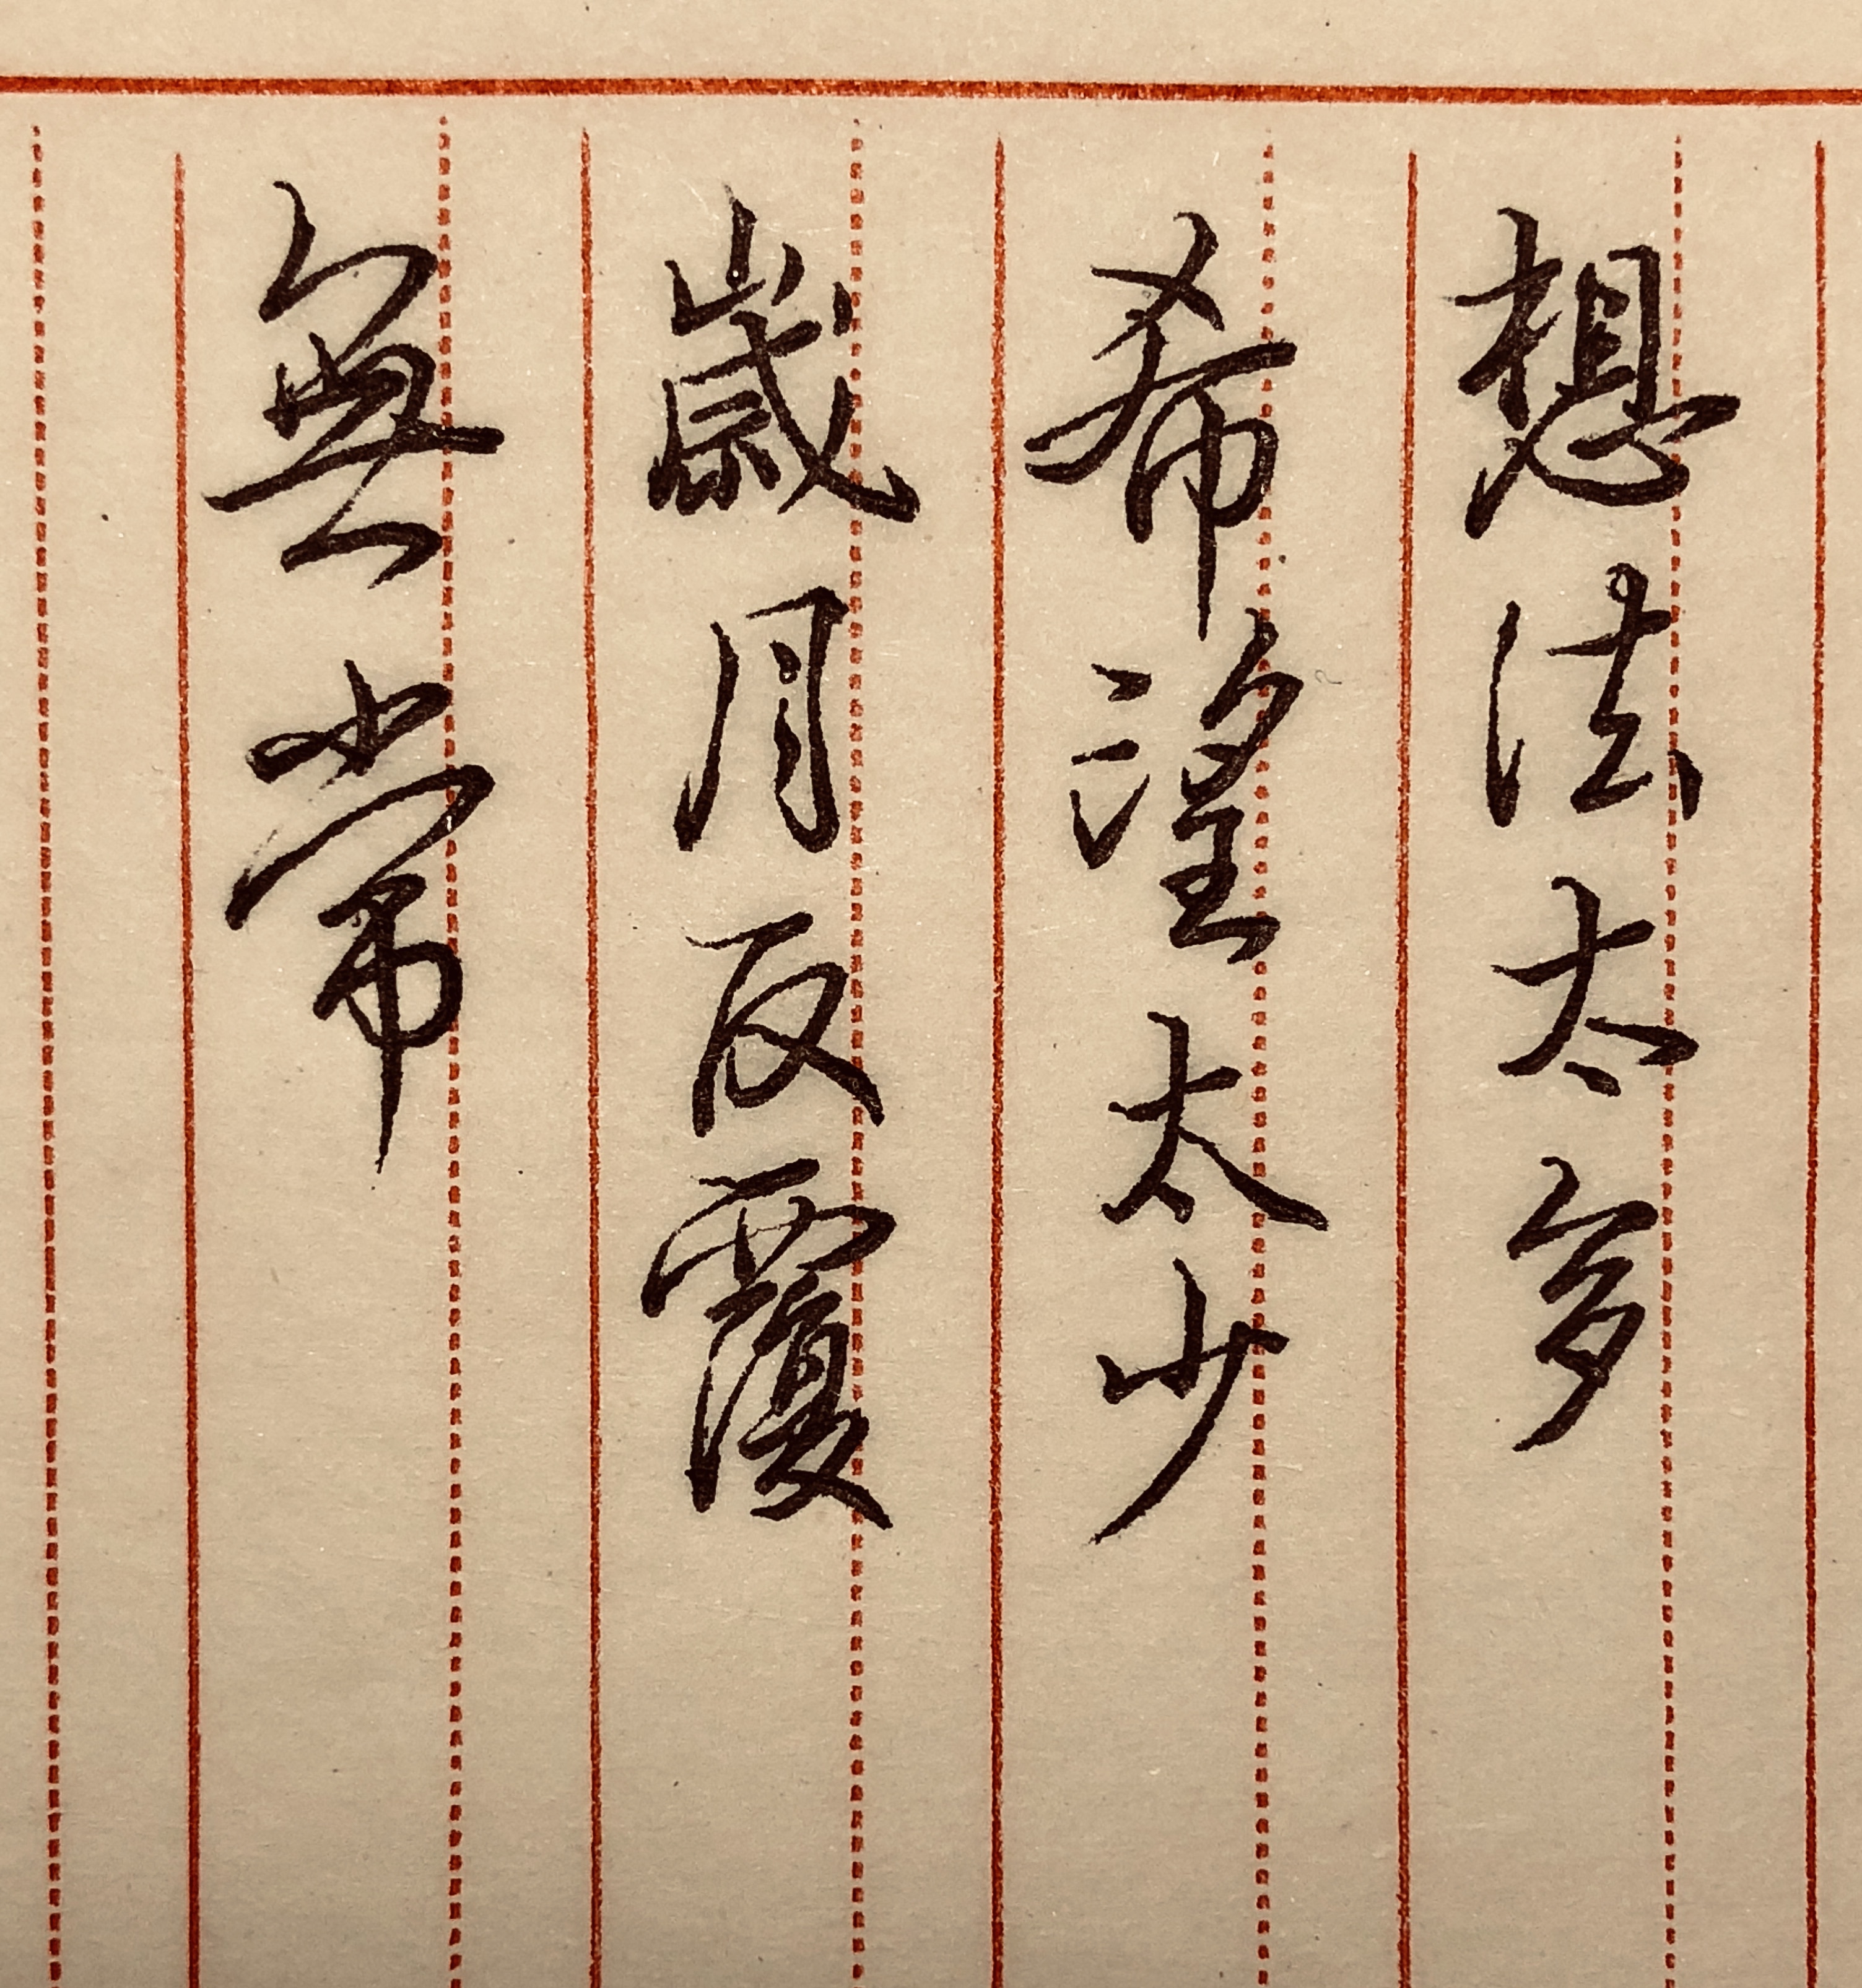 想法太多
希望太少
歲月反覆
無常